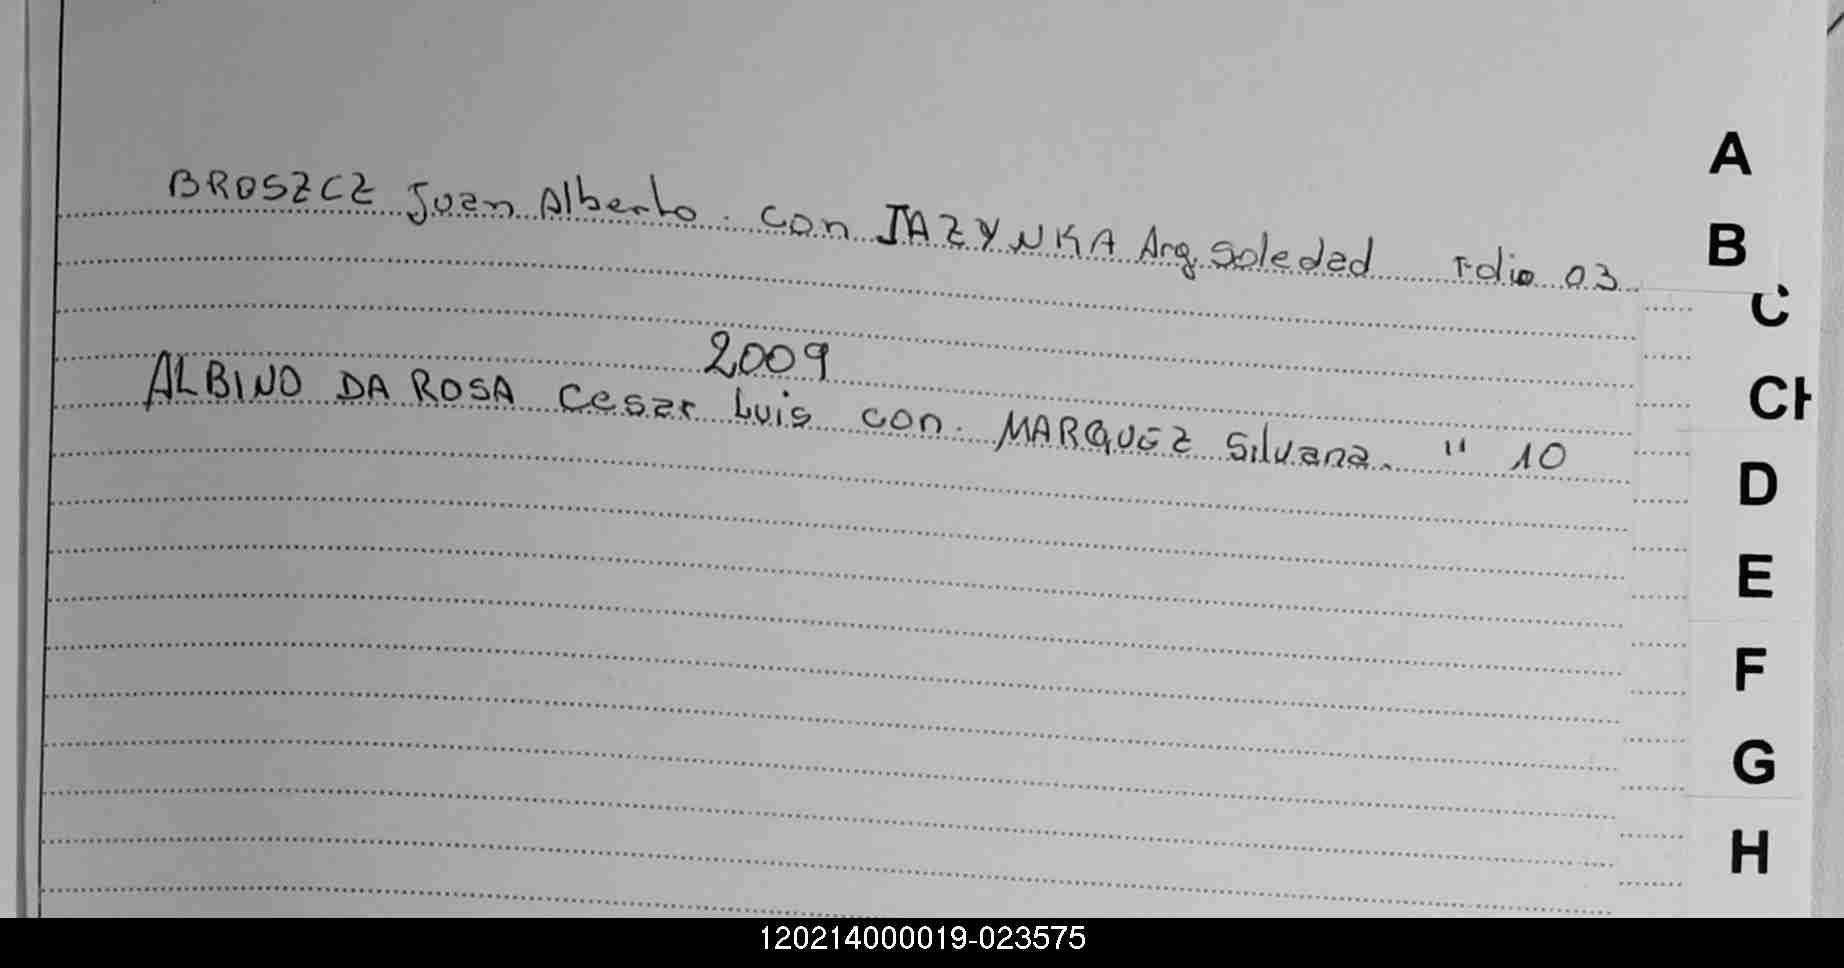 BROSZCZ Juan Alberto. con JAZYNKA Arg. Soledad Fdio 03
2009
ALBINO DA ROSA Cesar Luis con. MARQUEZ Silvana. " 10
A
B
C
CH
D
E
F
G
H
120214000019-023575